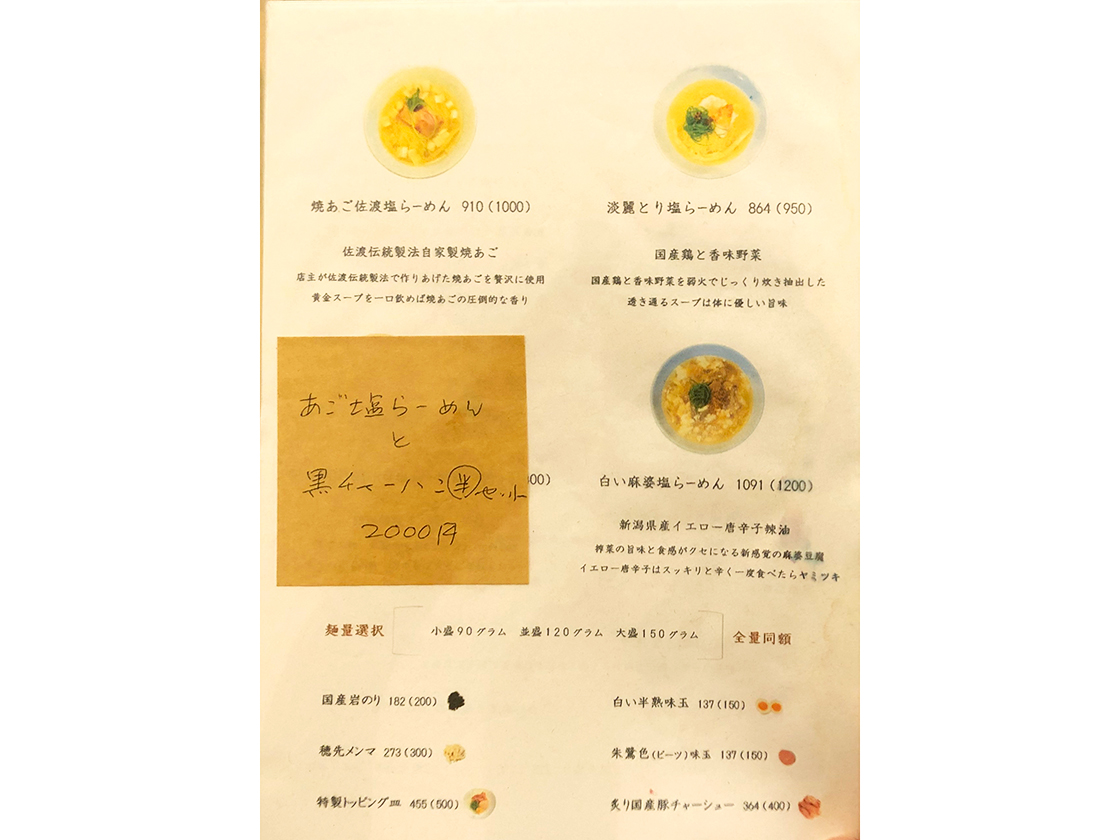 焼あご佐渡塩らーめん 910(1000)
佐渡伝統製法自家製焼あご
店主が佐渡伝統製法で作りあげた焼あごを贅沢に使用
黄金スープを一口飲めば焼あごの圧倒的な香り
淡麗とり塩らーめん 864(950)
国産鶏と香味野菜
国産鶏と香味野菜を弱火でじっくり炊き抽出した
透き通るスープは体に優しい旨味
あご塩らーめん
と
黒チャーハン半セット
2000円
00)
白い麻婆塩らーめん 1091(1200)
新潟県産イエロー唐辛子辣油
搾菜の旨味と食感がクセになる新感覚の麻婆豆腐
イエロー唐辛子はスッキリと辛く一度食べたらヤミツキ
麺量選択 小盛90グラム 並盛120グラム 大盛150グラム 全量同額
国産岩のり 182(200)
穂先メンマ 273(300)
特製トッピング皿 455(500)
白い半熟味玉 137(150)
朱鷺色(ビーツ)味玉 137(150)
炙り国産豚チャーシュー 364(400)